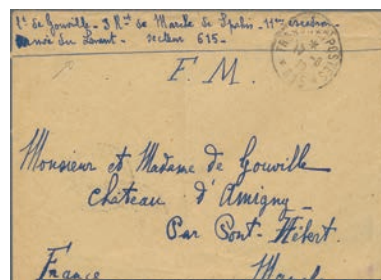 Lt de Gouville - 3 Rnt de Marche de Spahis - 11me escadron -
Armée du Levant - secteur 615 -
F. M.
Monsieur et Madame de Gouville
Château d'Amigny -
Par Pont-Hébert.
France Manche